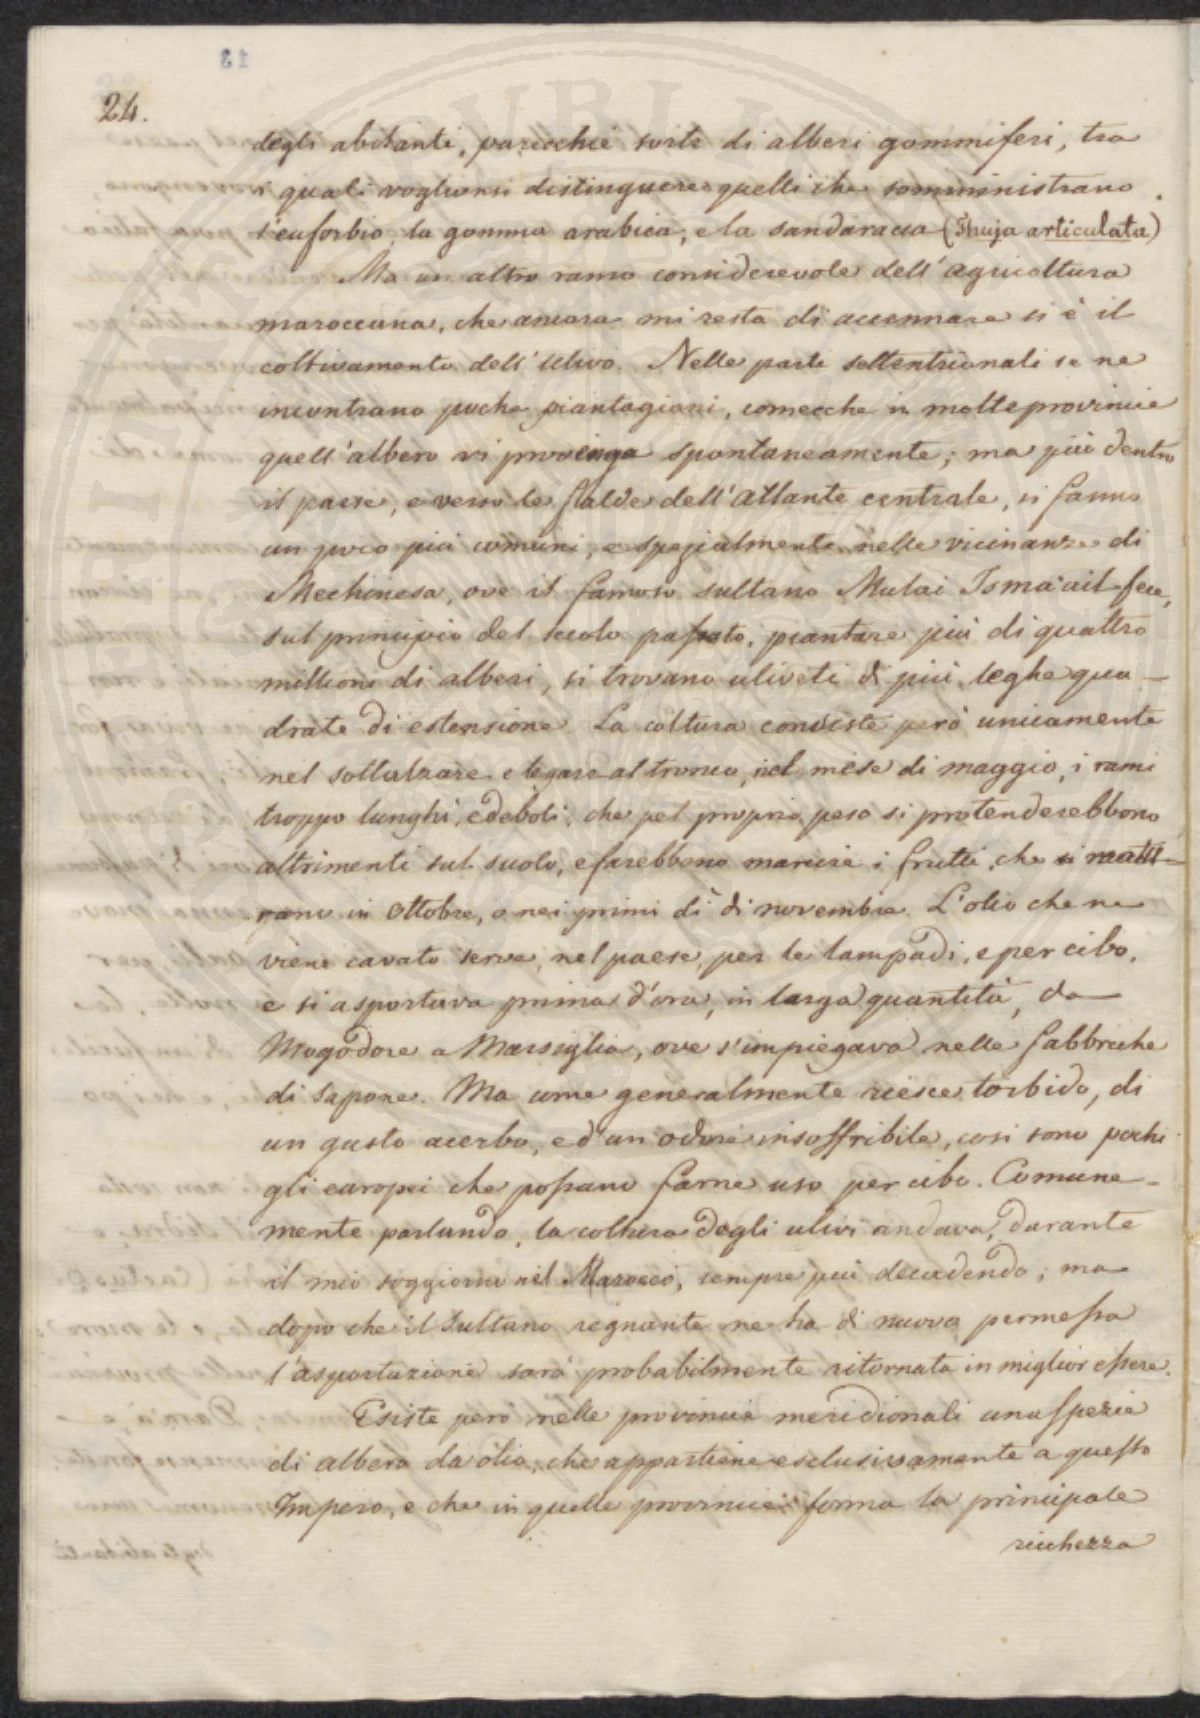 24.
degli abitanti, parecchie sorte di alberi gommiferi, tra
i quali voglionsi distinguere quelli che somministrano
l'euforbio, la gomma arabica, e la sandaracca (Thuja articulata)
Ma un altro ramo considerevole dell'agricoltura
maroccana, che ancora mi resta di accennare si è il
coltivamento dell'Ulivo. Nelle parti settentrionali se ne
incontrano poche piantagioni, comecche in molte provincie
quell'albero vi provenga spontaneamente; ma più dentro
il paese, e verso le falde dell'Atlante centrale, si fanno
un poco più comuni, e spezialmente nelle vicinanze di
Mechinesa, ove il famoso sultano Mulai Isma'ail fece,
sul principio del secolo passato, piantare più di quattro
millioni di alberi, si trovano uliveti di più leghe qua-
drate di estensione. La coltura consiste però unicamente
nel sollalzare e legare al tronco, nel mese di maggio, i rami
troppo lunghi, e deboli, che pel proprio peso si protenderebbono
altrimenti sul suolo, e farebbono marcire i frutti, che si
in Ottobre, o nei primi dì di novembre. L'olio che ne
viene cavato serve, nel paese, per le lampadi, e per cibo,
e si asportava prima d'ora, in larga quantità, da
Mogodore a Marsiglia, ove s'impiegava nelle fabbriche
di sapone. Ma come generalmente riesce torbido, di
un gusto acerbo, e d'un odore insoffribile, così sono pochi
gli europei che possano farne uso per cibo. Comune-
mente parlando, la coltura degli ulivi andava, durante
il mio soggiorno nel Marocco, sempre più decadendo; ma
dopo che il Sultano regnante ne ha di nuovo permessa
l'asportazione sarà probabilmente ritornata in miglior essere.
Esiste però nelle provincie meridionali una spezie
di albero da olio, che appartiene esclusivamente a questo
Impero, e che in quelle provincie forma la principale
ricchezza